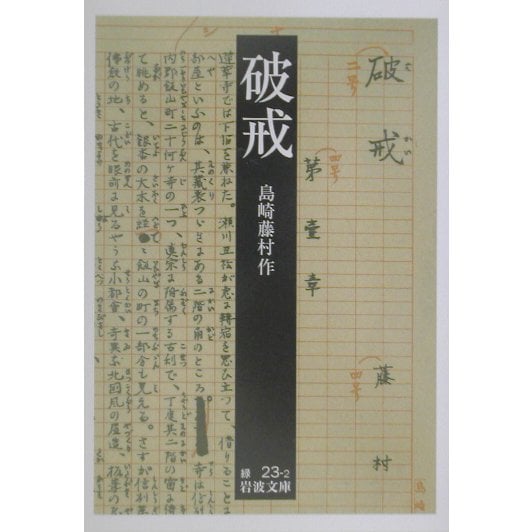 破戒
二号
第壹章
四号
藤村
四号
島崎
破戒
島崎藤村作
緑 23-2
岩波文庫
蓮華寺では下宿を兼ねた。瀬川丑松が急に轉宿を思ひ立つて、借りること
部屋といふのは、其藏裏つゞきにある二階の角のところ 寺は信
内郡飯山町二十何ヶ寺の一つ、真宗に附属する古刹で、丁度其二階の窓に
て眺めると、銀杏の大木を經てゝ飯山の町の一部分も見える。さすが信州第
佛教の地、古代を眼前に見るやうな小都會、奇異な北國風の屋造、板葺の